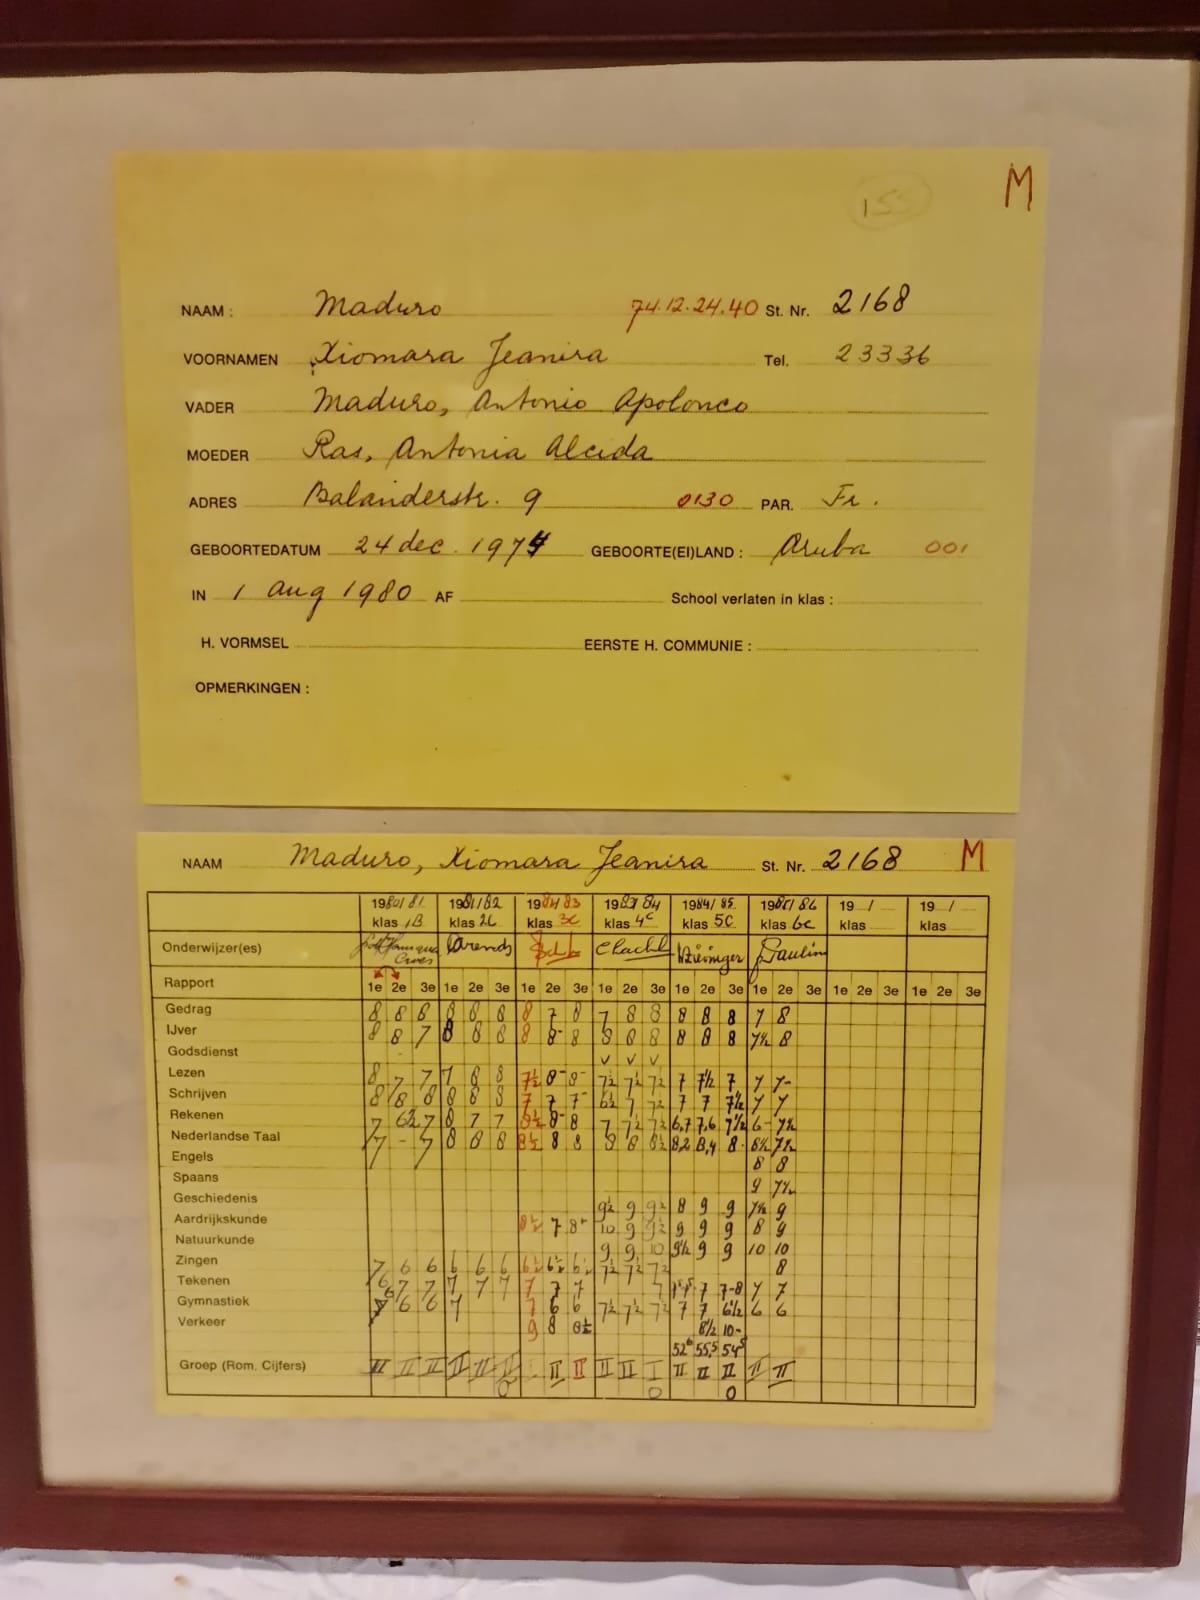 155
M
NAAM : Maduro 74.12.24.40 St. Nr. 2168
VOORNAMEN Xiomara Jeanira Tel. 23336
VADER Maduro, Antonio Apolonco
MOEDER Ras, Antonia Alcida
ADRES Balanderstr. 9 0130 PAR. Fr.
GEBOORTEDATUM 24 dec. 1974 GEBOORTE(EI)LAND : Aruba 001
IN 1 aug 1980 AF School verlaten in klas :
H. VORMSEL EERSTE H. COMMUNIE :
OPMERKINGEN :
NAAM Maduro, Xiomara Jeanira St. Nr. 2168 M
1980/81 1981/82 1983/84 1984/85 1985/86 19 / 19 /
klas 1B klas 2c klas 3c klas 4c klas 5C klas 6c klas klas
Onderwijzer(es) Croes Arends
Rapport 1e 2e 3e 1e 2e 3e 1e 2e 3e 1e 2e 3e 1e 2e 3e 1e 2e 3e 1e 2e 3e 1e 2e 3e
Gedrag 8 8 8 8 8 8 8 7 8 7 8 8 8 8 8 7 8
IJver 8 8 7 8 8 8 8 8- 8 8 8 8 8 8 8 7½ 8
Godsdienst v v v
Lezen 8 7 7 7 8 8 7½ 8- 8- 7½ 7½ 7½ 7 7½ 7 7 7-
Schrijven 8 8 8 8 8 8 7 7 7- 6½ 7 7½ 7 7 7½ 7 7
Rekenen 7 6½ 7 8 7 7 8½ 8- 8 7 7½ 7½ 6,7 7,6 7½ 6- 7½
Nederlandse Taal 7 - 7 8 8 8 8½ 8 8 8 8 8½ 8,2 8,4 8- 8½ 7½
Engels 8 8
Spaans 9 7½
Geschiedenis 9½ 9 9½ 8 9 9 7½ 9
Aardrijkskunde 8½ 7 8+ 10 9 9½ 9 9 9 8 9
Natuurkunde 9 9 10 9½ 9 9 10 10
Zingen 7 6 6 6 6 6 6½ 6½ 6½ 7½ 7½ 7½ 8
Tekenen 6 7 7 7 7 7 7 7 7 7 7 7-8 7 7
Gymnastiek 7 6 6 7 7 6 6 7½ 7½ 7½ 7 7 6½ 6 6
Verkeer 9 8 8½ 8½ 10-
52⁶ 55,5 54⁵
Groep (Rom. Cijfers) II II II II II II II II II II I II II II II II
0 0 0